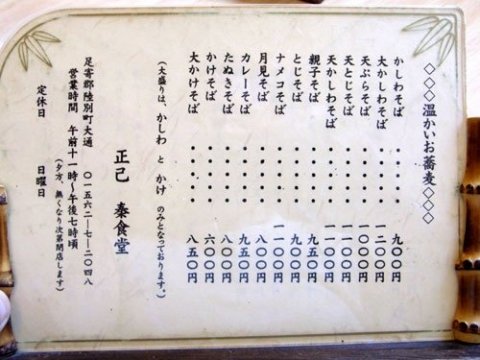 ◇◇◇温かいお蕎麦◇◇◇
かしわそば・・・・・・九〇〇円
大かしわそば・・・・・・一二〇〇円
天ぷらそば・・・・・・一〇〇〇円
天とじそば・・・・・・一一〇〇円
天かしわそば・・・・・・一一〇〇円
親子そば・・・・・・九五〇円
とじそば・・・・・・九〇〇円
ナメコそば・・・・・・一一〇〇円
月見そば・・・・・・八〇〇円
カレーそば・・・・・・九五〇円
たぬきそば・・・・・・八〇〇円
かけそば・・・・・・六〇〇円
大かけそば・・・・・・八五〇円
(大盛りは、かしわ と かけ のみとなっております。)
正己 秦食堂
足寄郡陸別町大通 〇一五六二―七―二〇四八
営業時間 午前十一時〜午後七時頃
(夕方、無くなり次第閉店します)
定休日 日曜日